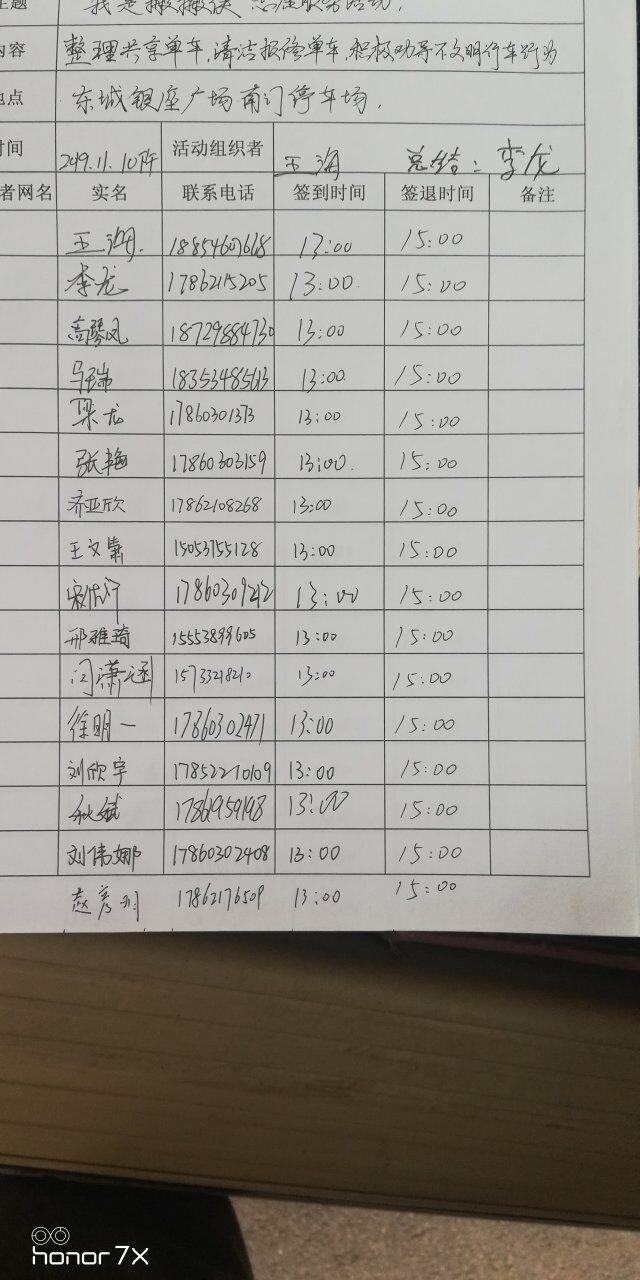 主题 我是搬搬侠 志愿服务活动.
内容 整理共享单车,清洁损修单车,积极劝导不文明行车行为
地点 东城银座广场南门停车场.
时间 活动组织者 王海 总结：李龙
者网名 实名 联系电话 签到时间 签退时间 备注
王海. 13:00 15:00
李龙 1786215205 13:00. 15:00
高琴凤 18729884730 13:00 15:00
马瑞 18353485613 13:00. 15:00
梁龙 17860301373 13:00 15:00
张艳 17860303159 13:00. 15:00
齐亚欣 17862108268 13:00 15:00
王文常 15053755128 13:00 15:00
17860309242 13:00 15:00
邢雅琦 15553899605 13:00 15:00
闫潇涵 15733218210 13:00 15:00
徐明一 17860302471 13:00 15:00
刘欣宇 17852210109 13:00 15:00
17861959198 13:00 15:00
刘伟娜 17860302408 13:00 15:00
赵彦明 17862176509 13:00 15:00
honor 7X